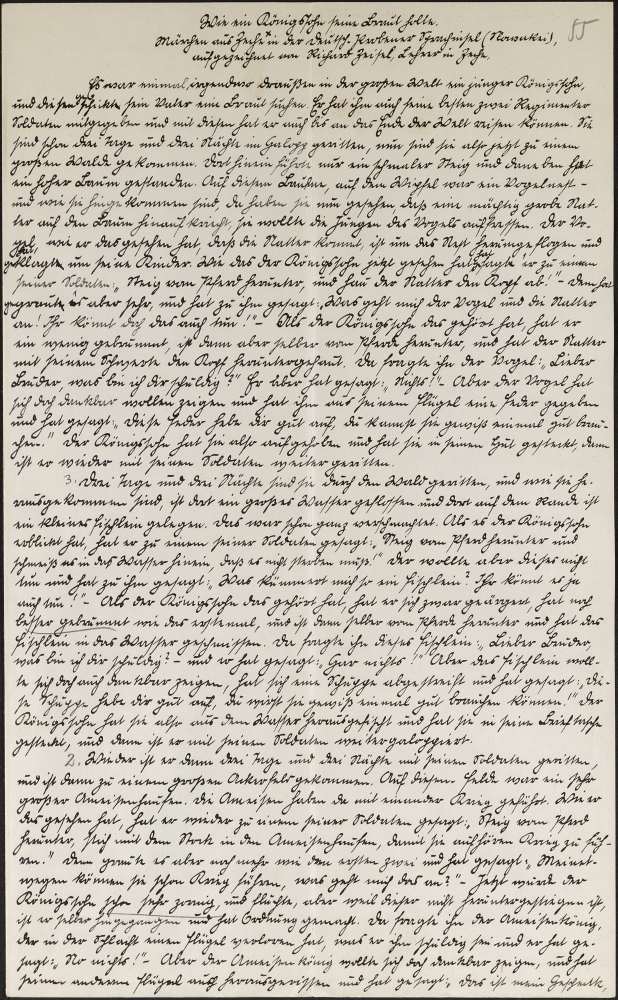 Wie ein Königssohn seine Braut holte.
55
Märchen aus Zeche in der Deutsch-Probener Sprachinsel (Slowakei),
aufgezeichnet von Richard Zeisel, Lehrer in Zeche.
Es war einmal, irgendwo draußen in der großen Welt ein junger Königssohn,
und diesen schickte sein Vater eine Braut suchen. Er hat ihm auch seine besten zwei Regimenter
Soldaten mitgegeben und mit diesen hat er auch bis an das Ende der Welt reisen können. Sie
sind schon drei Tage und drei Nächte im Galopp geritten, nun sind sie also jetzt zu einem
großen Walde gekommen. Dort hinein führte nur ein schmaler Steig und daneben hat
ein hoher Baum gestanden. Auf diesem Baume, auf dem Wipfel war ein Vogelnest -
und wie sie hingekommen sind, da haben sie nun gesehen daß eine mächtig große Nat-
ter auf den Baum hinauf kriecht, sie wollte die Jungen des Vogels auffressen. Der Vo-
gel, wie er das gesehen hat, daß die Natter kommt, ist um das Nest herumgeflogen und
hat geklagt um seine Kinder. Wie das der Königssohn jetzt gesehen hat, sagte er zu einem
seiner Soldaten: „Steig vom Pferd herunter, und hau der Natter den Kopf ab!" - Dem hat
gegraut es aber sehr, und hat zu ihm gesagt: „Was geht mich der Vogel und die Natter
an! Ihr könnt doch das auch tun!" - Als der Königssohn das gehört hat, hat er
ein wenig gebrummt, ist dann aber selber vom Pferde herunter, und hat der Natter
mit seinem Schwerte den Kopf heruntergehaut. Da fragte ihn der Vogel: „Lieber
Bruder, was bin ich dir schuldig?" Er aber hat gesagt: „Nichts!" - Aber der Vogel hat
sich doch dankbar wollen zeigen und hat ihm aus seinem Flügel eine Feder gegeben
und hat gesagt: „Diese Feder hebe dir gut auf, du kannst sie gewiß einmal gut brau-
chen." Der Königssohn hat sie also aufgehoben und hat sie in seinen Hut gesteckt, dann
ist er wieder mit seinen Soldaten weiter geritten.
3. Drei Tage und drei Nächte sind sie durch den Wald geritten, und wie sie he-
rausgekommen sind, ist dort ein großes Wasser geflossen und dort auf dem Rande ist
ein kleines Fischlein gelegen. Das war schon ganz verschmachtet. Als es der Königssohn
erblickt hat, hat er zu einem seiner Soldaten gesagt: „Steig vom Pferd herunter und
schmeiß es in das Wasser hinein, daß es nicht sterben muß!" Der wollte aber dieses nicht
tun und hat zu ihm gesagt: „Was kümmert mich so ein Fischlein? Ihr könnt es ja
auch tun!" - Als der Königssohn das gehört hat, hat er sich zwar geärgert, hat noch
besser gebrummt wie das erste mal, und ist dann selber vom Pferde herunter und hat das
Fischlein in das Wasser geschmissen. Da fragte ihn dieses Fischlein: „Lieber Bruder,
was bin ich dir schuldig? - und er hat gesagt: „Gar nichts!" Aber das Fischlein woll-
te sich doch auch dankbar zeigen, hat sich eine Schuppe abgestreift und hat gesagt: „Die-
se Schuppe hebe dir gut auf, du wirst sie gewiß einmal gut brauchen können!" Der
Königssohn hat sie also aus dem Wasser herausgefischt und hat sie in seine Brieftasche
gesteckt, und dann ist er mit seinen Soldaten weitergaloppiert.
2. Wieder ist er dann drei Tage und drei Nächte mit seinen Soldaten geritten,
und ist dann zu einem großen Ackerfeld gekommen. Auf diesem Felde war ein sehr
großer Ameisenhaufen. Die Ameisen haben da mit einander Krieg geführt. Wie er
das gesehen hat, hat er wieder zu einem seiner Soldaten gesagt: „Steig vom Pferd
herunter, stich mit dem Stock in den Ameisenhaufen, damit sie aufhören Krieg zu füh-
ren." Dem graute es aber noch mehr wie den ersten zwei und hat gesagt: „Meinet-
wegen können sie schon Krieg führen, was geht mich das an?" - Jetzt wurde der
Königssohn schon sehr zornig, und fluchte, aber weil dieser nicht heruntergestiegen ist,
ist er selber hingegangen und hat Ordnung gemacht. Da fragte ihn der Ameisenkönig,
der in der Schlacht einen Flügel verloren hat, was er ihm schuldig sei und er hat ge-
sagt: „No nichts!" - Aber der Ameisenkönig wollte sich doch dankbar zeigen, und hat
seinen anderen Flügel auch herausgerissen und hat gesagt: „Das ist mein Geschenk,